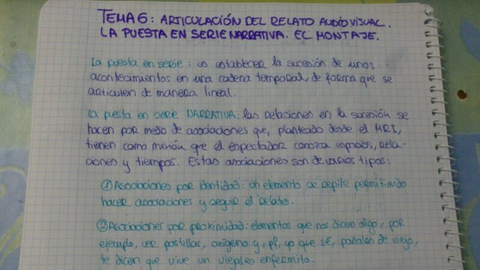 TEMA 6: ARTICULACIÓN DEL RELATO AUDIOVISUAL.
LA PUESTA EN SERIE NARRATIVA. EL MONTAJE.
La puesta en serie: es establecer la sucesión de unos
acontecimientos en una cadena temporal, de forma que se
articulen de manera lineal.
La puesta en serie NARRATIVA: las relaciones en la sucesión se
hacen por medio de asociaciones que, planteado desde el MRI,
tienen como misión que el espectador conozca espacios, rela-
ciones y tiempos. Estas asociaciones son de varios tipos:
① Asociaciones por identidad: un elemento se repite permitiendo
hacer asociaciones y seguir el relato.
② Asociaciones por proximidad: elementos que nos dicen algo, por
ejemplo, ver pastillas, oxígeno y, pf, yo que sé, pañales de viejo,
te dicen que vive un viejales enfermito.